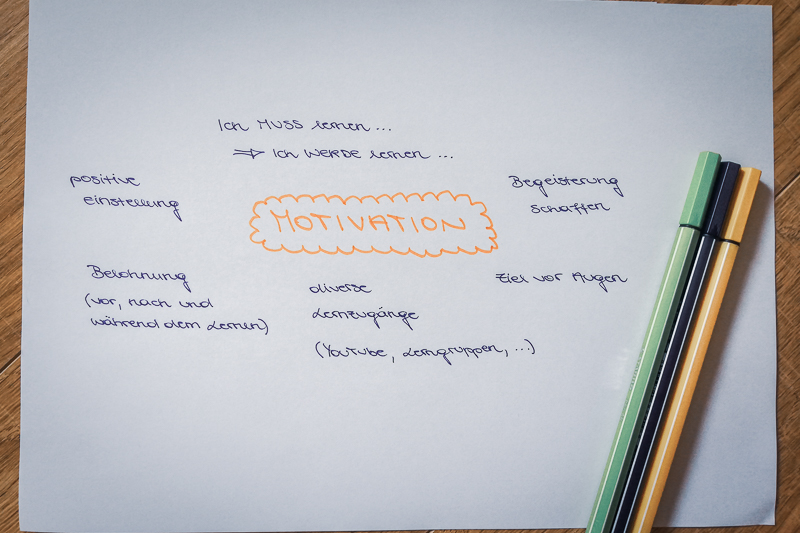 Ich MUSS lernen ...
⇒ Ich WERDE lernen ...
positive
einstellung
Begeisterung
schaffen
MOTIVATION
Belohnung
(vor, nach und
während dem Lernen)
diverse
Lernzugänge
(YouTube, Lerngruppen, ...)
Ziel vor Augen